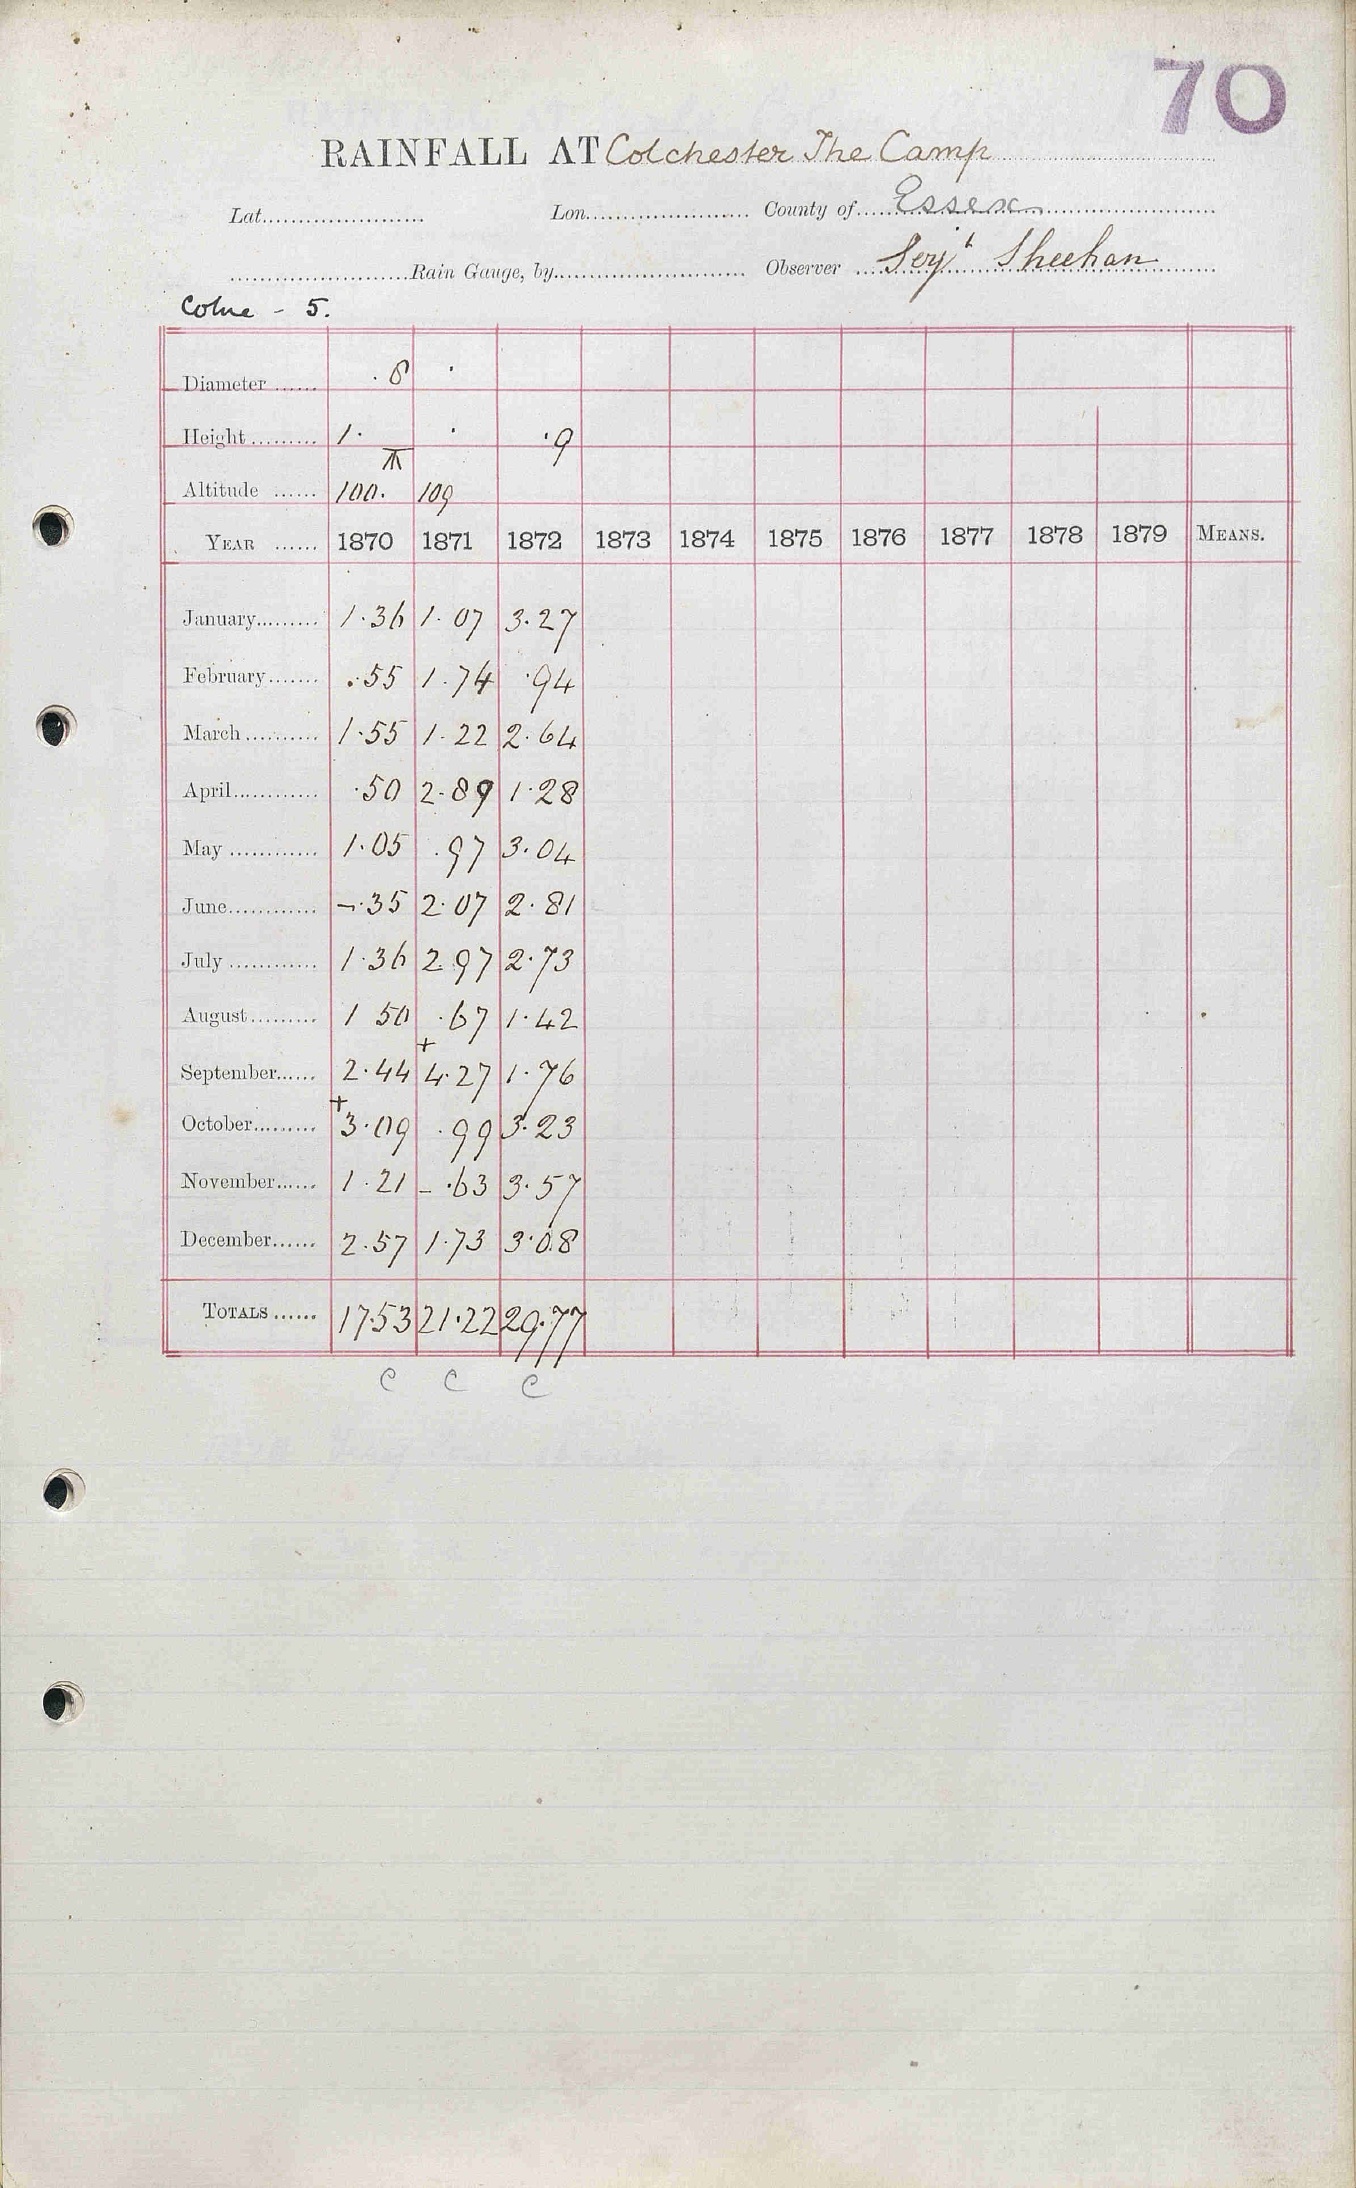 70
RAINFALL AT Colchester The Camp
Lat...................... Lon...................... County of Essex
......................Rain Gauge, by...................... Observer Serjt Sheehan
Colne - 5.
Diameter ...... .8 .
Height ......... 1. . .9
Altitude ...... 100. 109
YEAR ...... 1870 1871 1872 1873 1874 1875 1876 1877 1878 1879 MEANS.
January......... 1.36 1.07 3.27
February....... .55 1.74 .94
March .......... 1.55 1.22 2.64
April............ .50 2.89 1.28
May ............ 1.05 .97 3.04
June............ -.35 2.07 2.81
July ............ 1.36 2.97 2.73
August......... 1 50 .67 1.42
September...... 2.44 +4.27 1.76
October......... +3.09 .99 3.23
November...... 1.21 - .63 3.57
December...... 2.57 1.73 3.08
TOTALS ...... 17.53 21.22 29.77
C C C